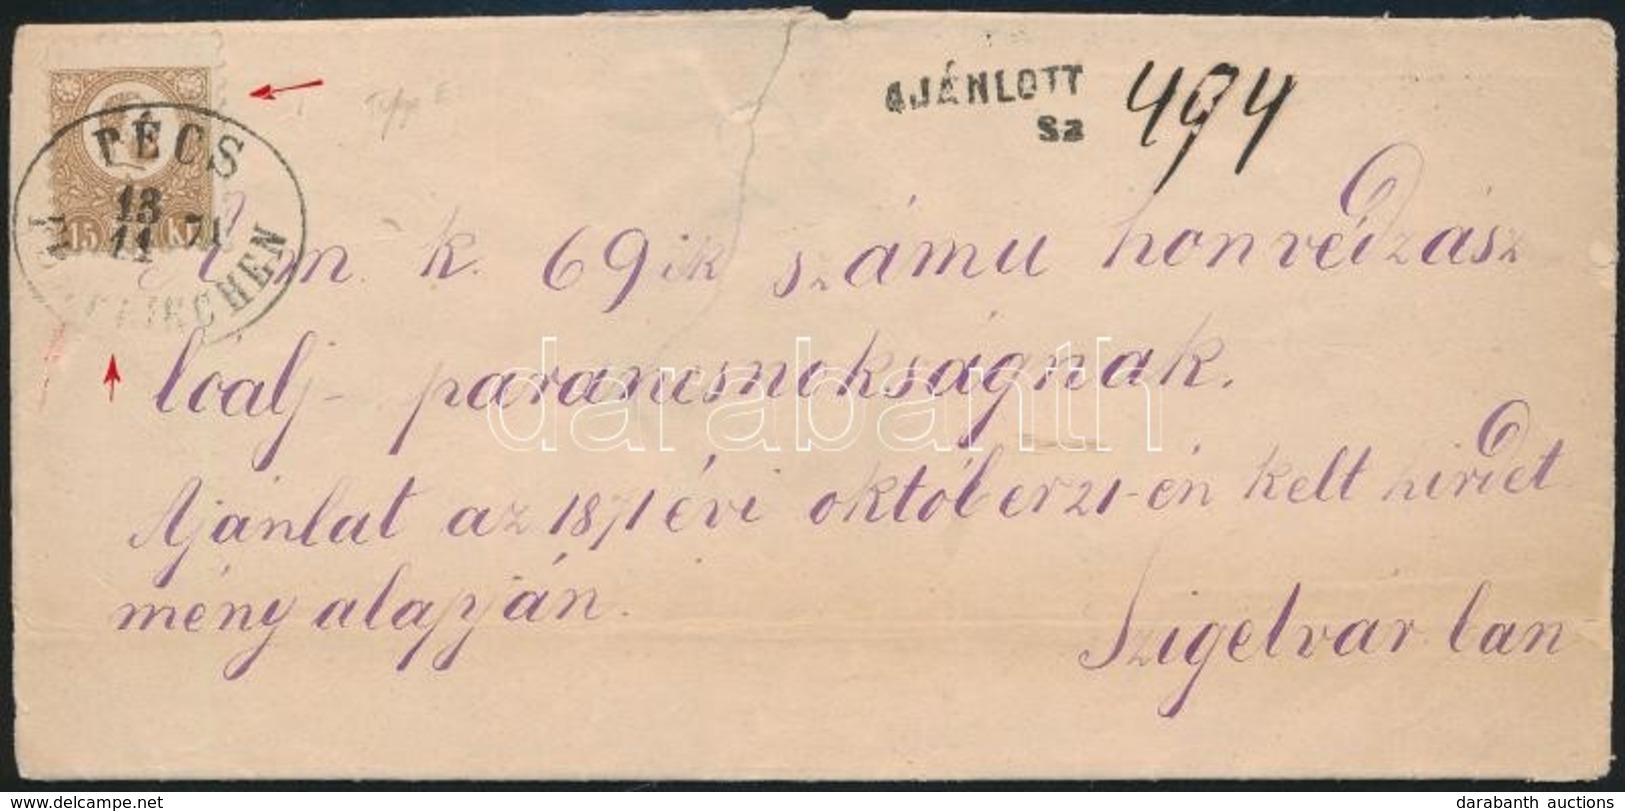 AJÁNLOTT
Sz 494
PÉCS
13
11 71
FÜNFKIRCHEN
15 Kr
A m. k. 69ik számu honvéd zász
lóalj - parancsnokságnak.
Ajánlat az 1871 évi október 21-én kelt hirdet
mény alapján.
Szigetvár ban
darabanth
darabanth auctions